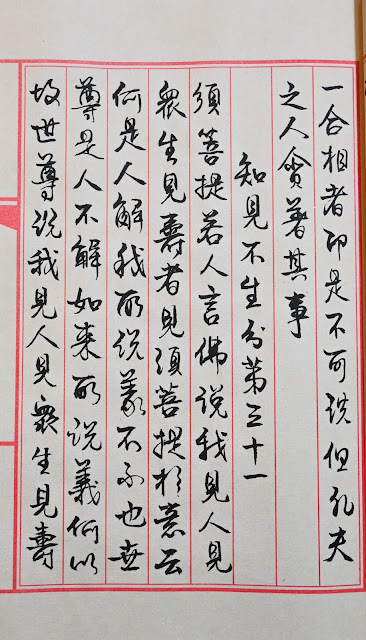 一合相者即是不可說但凡夫
之人貪著其事
知見不生分第三十一
須菩提若人言佛說我見人見
眾生見壽者見須菩提於意云
何是人解我所說義不不也世
尊是人不解如來所說義何以
故世尊說我見人見眾生見壽